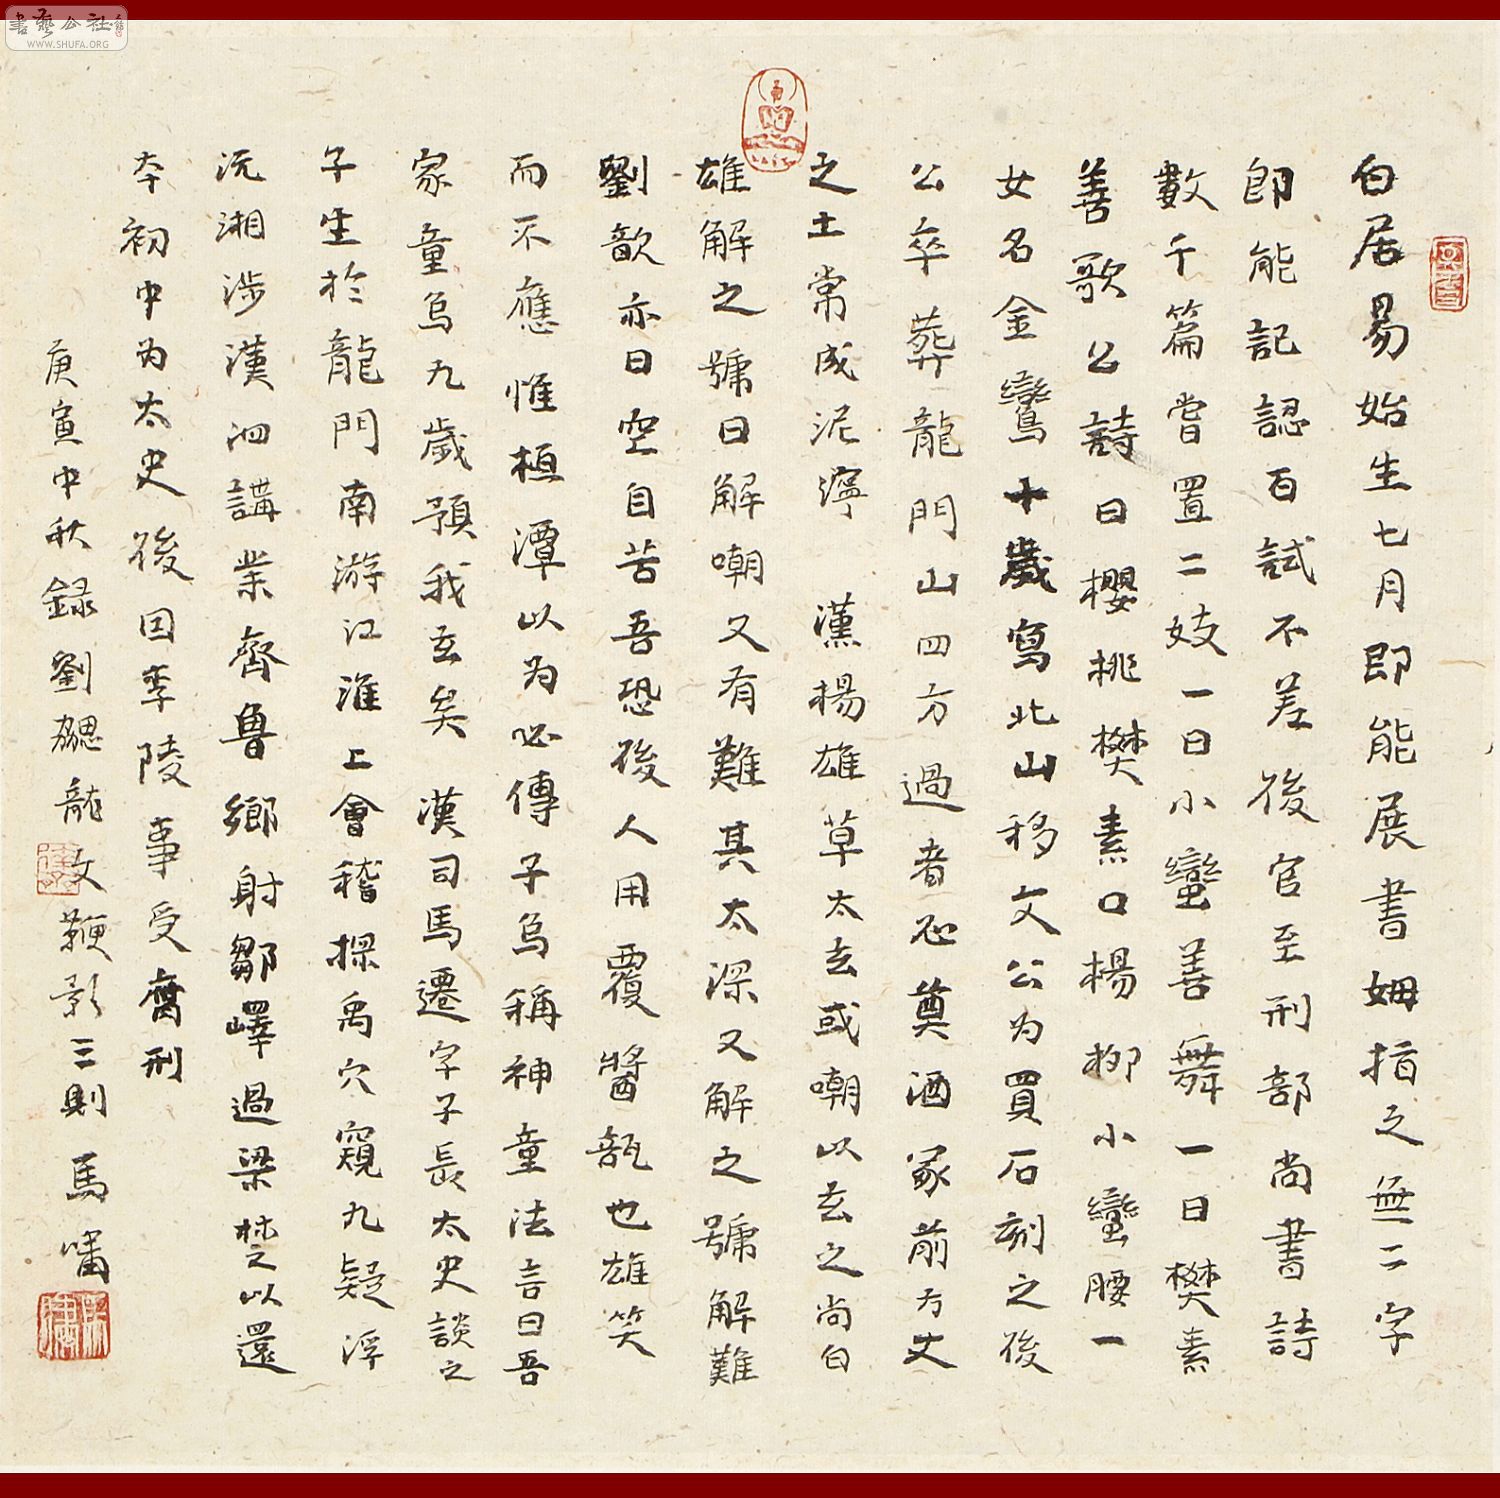 書藝公社
WWW.SHUFA.ORG
白居易始生七月即能展書姆指之無二字
即能記認百試不差後官至刑部尚書詩
數千篇嘗置二妓一曰小蠻善舞一曰樊素
善歌公詩曰櫻桃樊素口楊柳小蠻腰一
女名金鑾十歲寫北山移文公為買石刻之後
公卒葬龍門山四方過者必奠酒冢前方丈
之土常成泥濘 漢楊雄草太玄或嘲以玄之尚白
雄解之號曰解嘲又有難其太深又解之號解難
劉歆亦曰空自苦吾恐後人用覆醬瓿也雄笑
而不應惟桓潭以為必傳子烏稱神童法言曰吾
家童烏九歲預我玄矣 漢司馬遷字子長太史談之
子生於龍門南游江淮上會稽探禹穴窺九疑浮
沅湘涉漢泗講業齊魯鄉射鄒嶧過梁楚以還
太初中為太史後因李陵事受腐刑
庚寅中秋錄劉勰龍文鞭影三則馬嘯